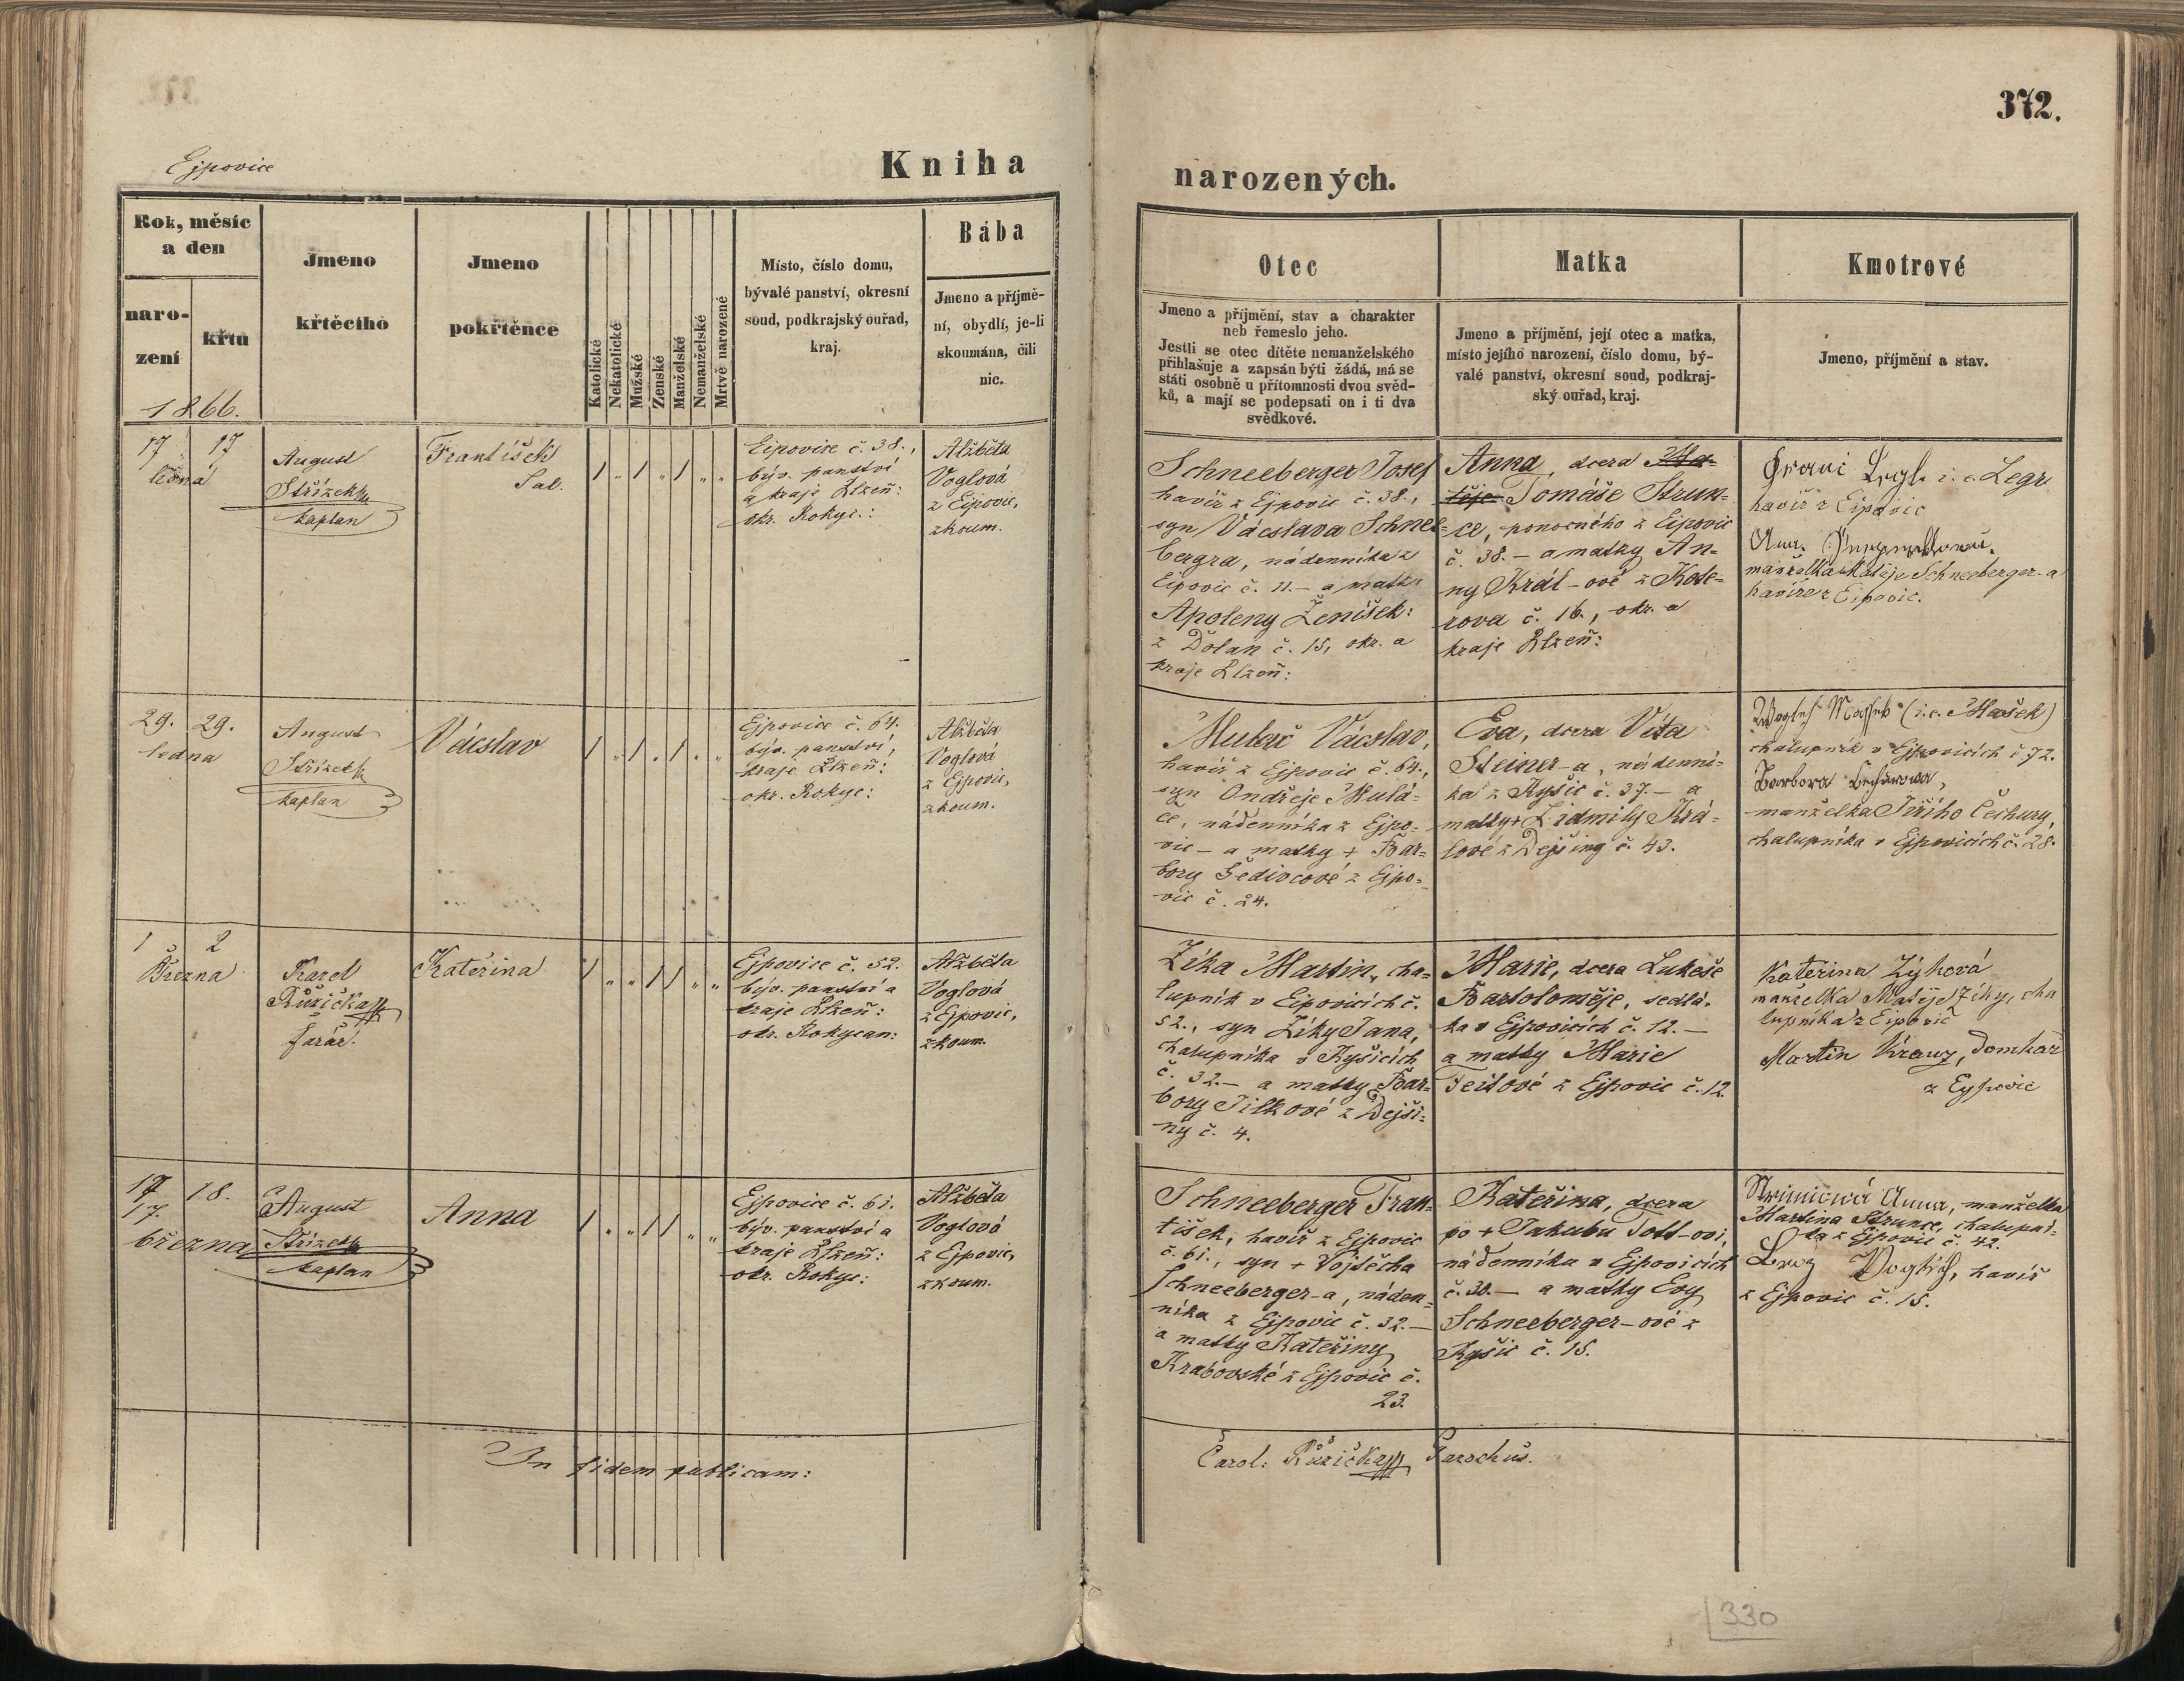 372.
Ejpovice
Kniha
narozených.
Rok, měsíc
a den
naro-
zení
křtu
1866.
Jmeno
křtěcího
Jmeno
pokřtěnce
Katolické
Nekatolické
Mužské
Ženské
Manželské
Nemanželské
Mrtvě narozené
Místo, číslo domu,
bývalé panství, okresní
soud, podkrajský ouřad,
kraj.
Bába
Jmeno a příjmě-
ní, obydlí, je-li
skoumána, čili
nic.
Otec
Jmeno a příjmění, stav a charakter
neb řemeslo jeho.
Jestli se otec dítěte nemanželského
přihlašuje a zapsán býti žádá, má se
státi osobně u přítomnosti dvou svěd-
ků, a mají se podepsati on i ti dva
svědkové.
Matka
Jmeno a příjmění, její otec a matka,
místo jejího narození, číslo domu, bý-
valé panství, okresní soud, podkraj-
ský ouřad, kraj.
Kmotrové
Jmeno, příjmění a stav.
17 17
ledna
August
Střízek
kaplan
František
Sal.
1 „ 1 „ 1 „ „
Eipovice č. 38.,
býv. panství
a kraje Plzeň:
okr. Rokyc.:
Alžběta
Voglová
z Eipovic,
zkoum.
Schneeberger Josef
havíř z Ejpovic č. 38.,
syn Vácslava Schnee-
bergra, nádenníka z
Eipovic č. 11. – a matky
Apoleny Ženíšek:
z Dolan č. 15, okr. a
kraje Plzeň:
Anna, dcera Ma-
těje Tomáše Strun-
ce, ponocného z Eipovic
č. 38. – a matky An-
ny Král-ové z Kote-
rova č. 16., okr. a
kraje Plzeň:
i. e. Legr
havíř z Eipovic
manželka Matěje Schneeberger-a
havíře z Eipovic.
29. 29.
ledna
August
Střízek
kaplan
Vácslav
1 „ 1 „ 1 „ „
Ejpovice č. 64.
býv. panství,
kraje Plzeň:
okr. Rokyc:
Alžběta
Voglová
z Ejpovic,
zkoum.
Mulač Vácslav,
havíř z Ejpovic č. 64.,
syn Ondřeje Mulá-
če, nádenníka z Ejpo-
vic – a matky + Bar-
bory Šedivcové z Ejpo-
vic č. 24.
Eva, dcera Víta
Steiner-a, nádenní-
ka z Kyšic č. 37. – a
matky + Lidmily Krá-
lové z Dejšiny č. 43.
(i. e. Mašek)
chalupník v Ejpovicích č. 72.
Barbora
manželka Jiřího Čechury,
chalupníka v Ejpovicích č. 28.
1 2
Března
Karel
Růžička
farář.
Kateřina
1 „ „ 1 1 „ „
Ejpovice č. 52.
býv. panství a
kraje Plzeň:
okr. Rokycan:
Alžběta
Voglová
z Ejpovic,
zkoum.
Zíka Martin, cha-
lupník v Eipovicích č.
52., syn Zíky Jana,
chalupníka v Kyšicích
č. 32. – a matky Bar-
bory Jílkové z Dejši-
ny č. 4.
Marie, dcera Lukeše
Bartoloměje, sedlá-
ka v Ejpovicích č. 12. –
a matky Marie
Teitlové z Ejpovic č. 12.
Kateřina Zýková
manželka Matěje Zíky, cha
lupníka z Eipovic
Martin Krauz, domkař
z Eypovic
17 18.
17.
března
August
Střízek
kaplan
Anna
1 „ „ 1 1 „ „
Ejpovice č. 61.
býv. panství a
kraje Plzeň:
okr. Rokyc:
Alžběta
Voglová
z Ejpovic,
zkoum.
Schneeberger Fran-
tišek, havíř z Ejpovic
č. 61., syn + Vojtěcha
Schneeberger-a, náden-
níka z Ejpovic č. 32. –
a matky Kateřiny
Krabovské z Ejpovic č.
23.
Kateřina, dcera
po + Jakubu Toll-ovi,
nádenníka v Ejpovicích
č. 30. – a matky Evy
Schneeberger-ové z
Kyšic č. 15.
Anna, manželka
Martina Strunce, chalupní-
ka z Ejpovic č. 42.
havíř
z Ejpovic č. 15.
In fidem publicam:
Carol: Růžička Parochus.
330